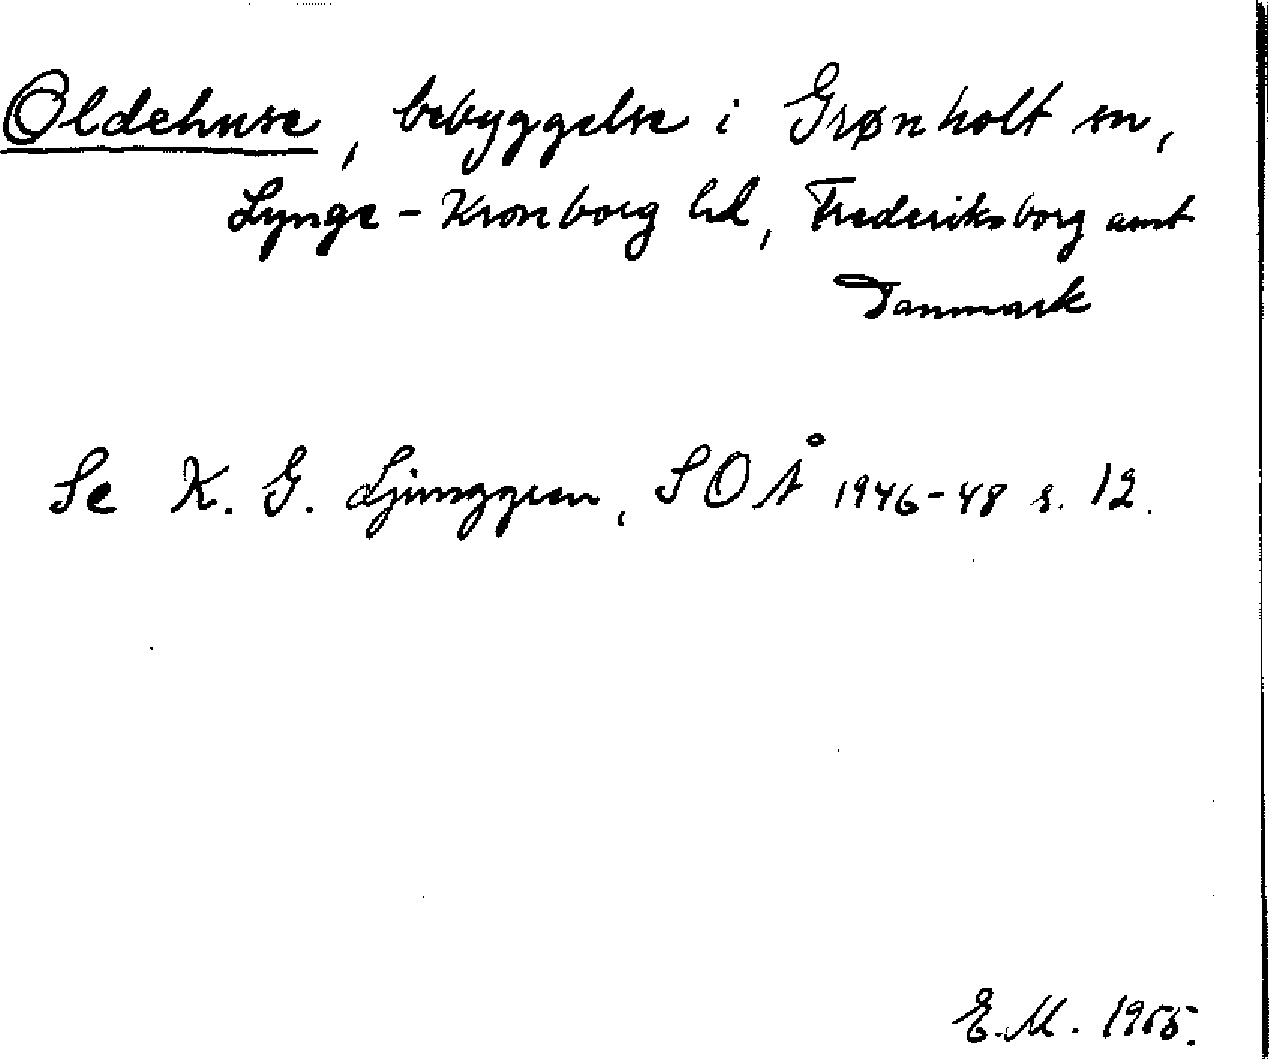 Oldehuse, bebyggelse i Grønholt sn,
Lynge-Kronborg hd, Frederiksborg amt
Danmark
Se K. G. Ljunggren, SOÅ 1946-48 s. 12.
E.M. 1955.